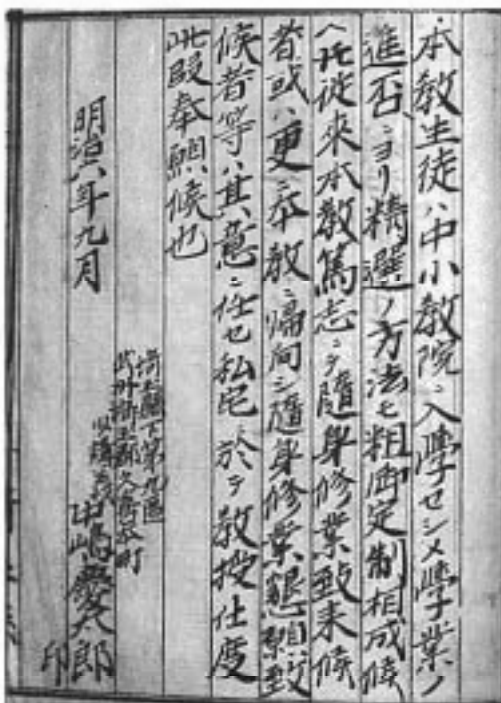 本教生徒ハ中小教院ニ入學セシメ學業ノ
進否ニヨリ精選ノ方法モ粗御定制相成候
ヘ共従来本教篤志ニテ隨身修業致来候
者或ハ更ニ本教ニ帰向シ隨身修業懇願致
候者等ハ其意ニ任セ私宅ニ於テ教授仕度
此段奉願候也
埼玉縣下第九區
武州埼玉郡久喜本町
明治八年九月
中嶋慶太郎
印